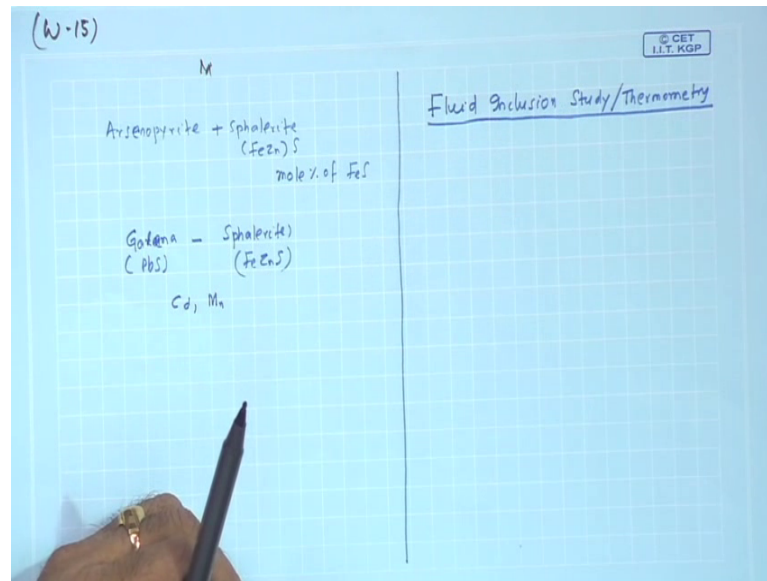 (W-15)
© CET
I.I.T. KGP
M
Arsenopyrite + Sphalerite
(FeZn) S
mole % of FeS
Galena - Sphalerite
(PbS) (FeZnS)
Cd, Mn
Fluid Inclusion Study/Thermometry